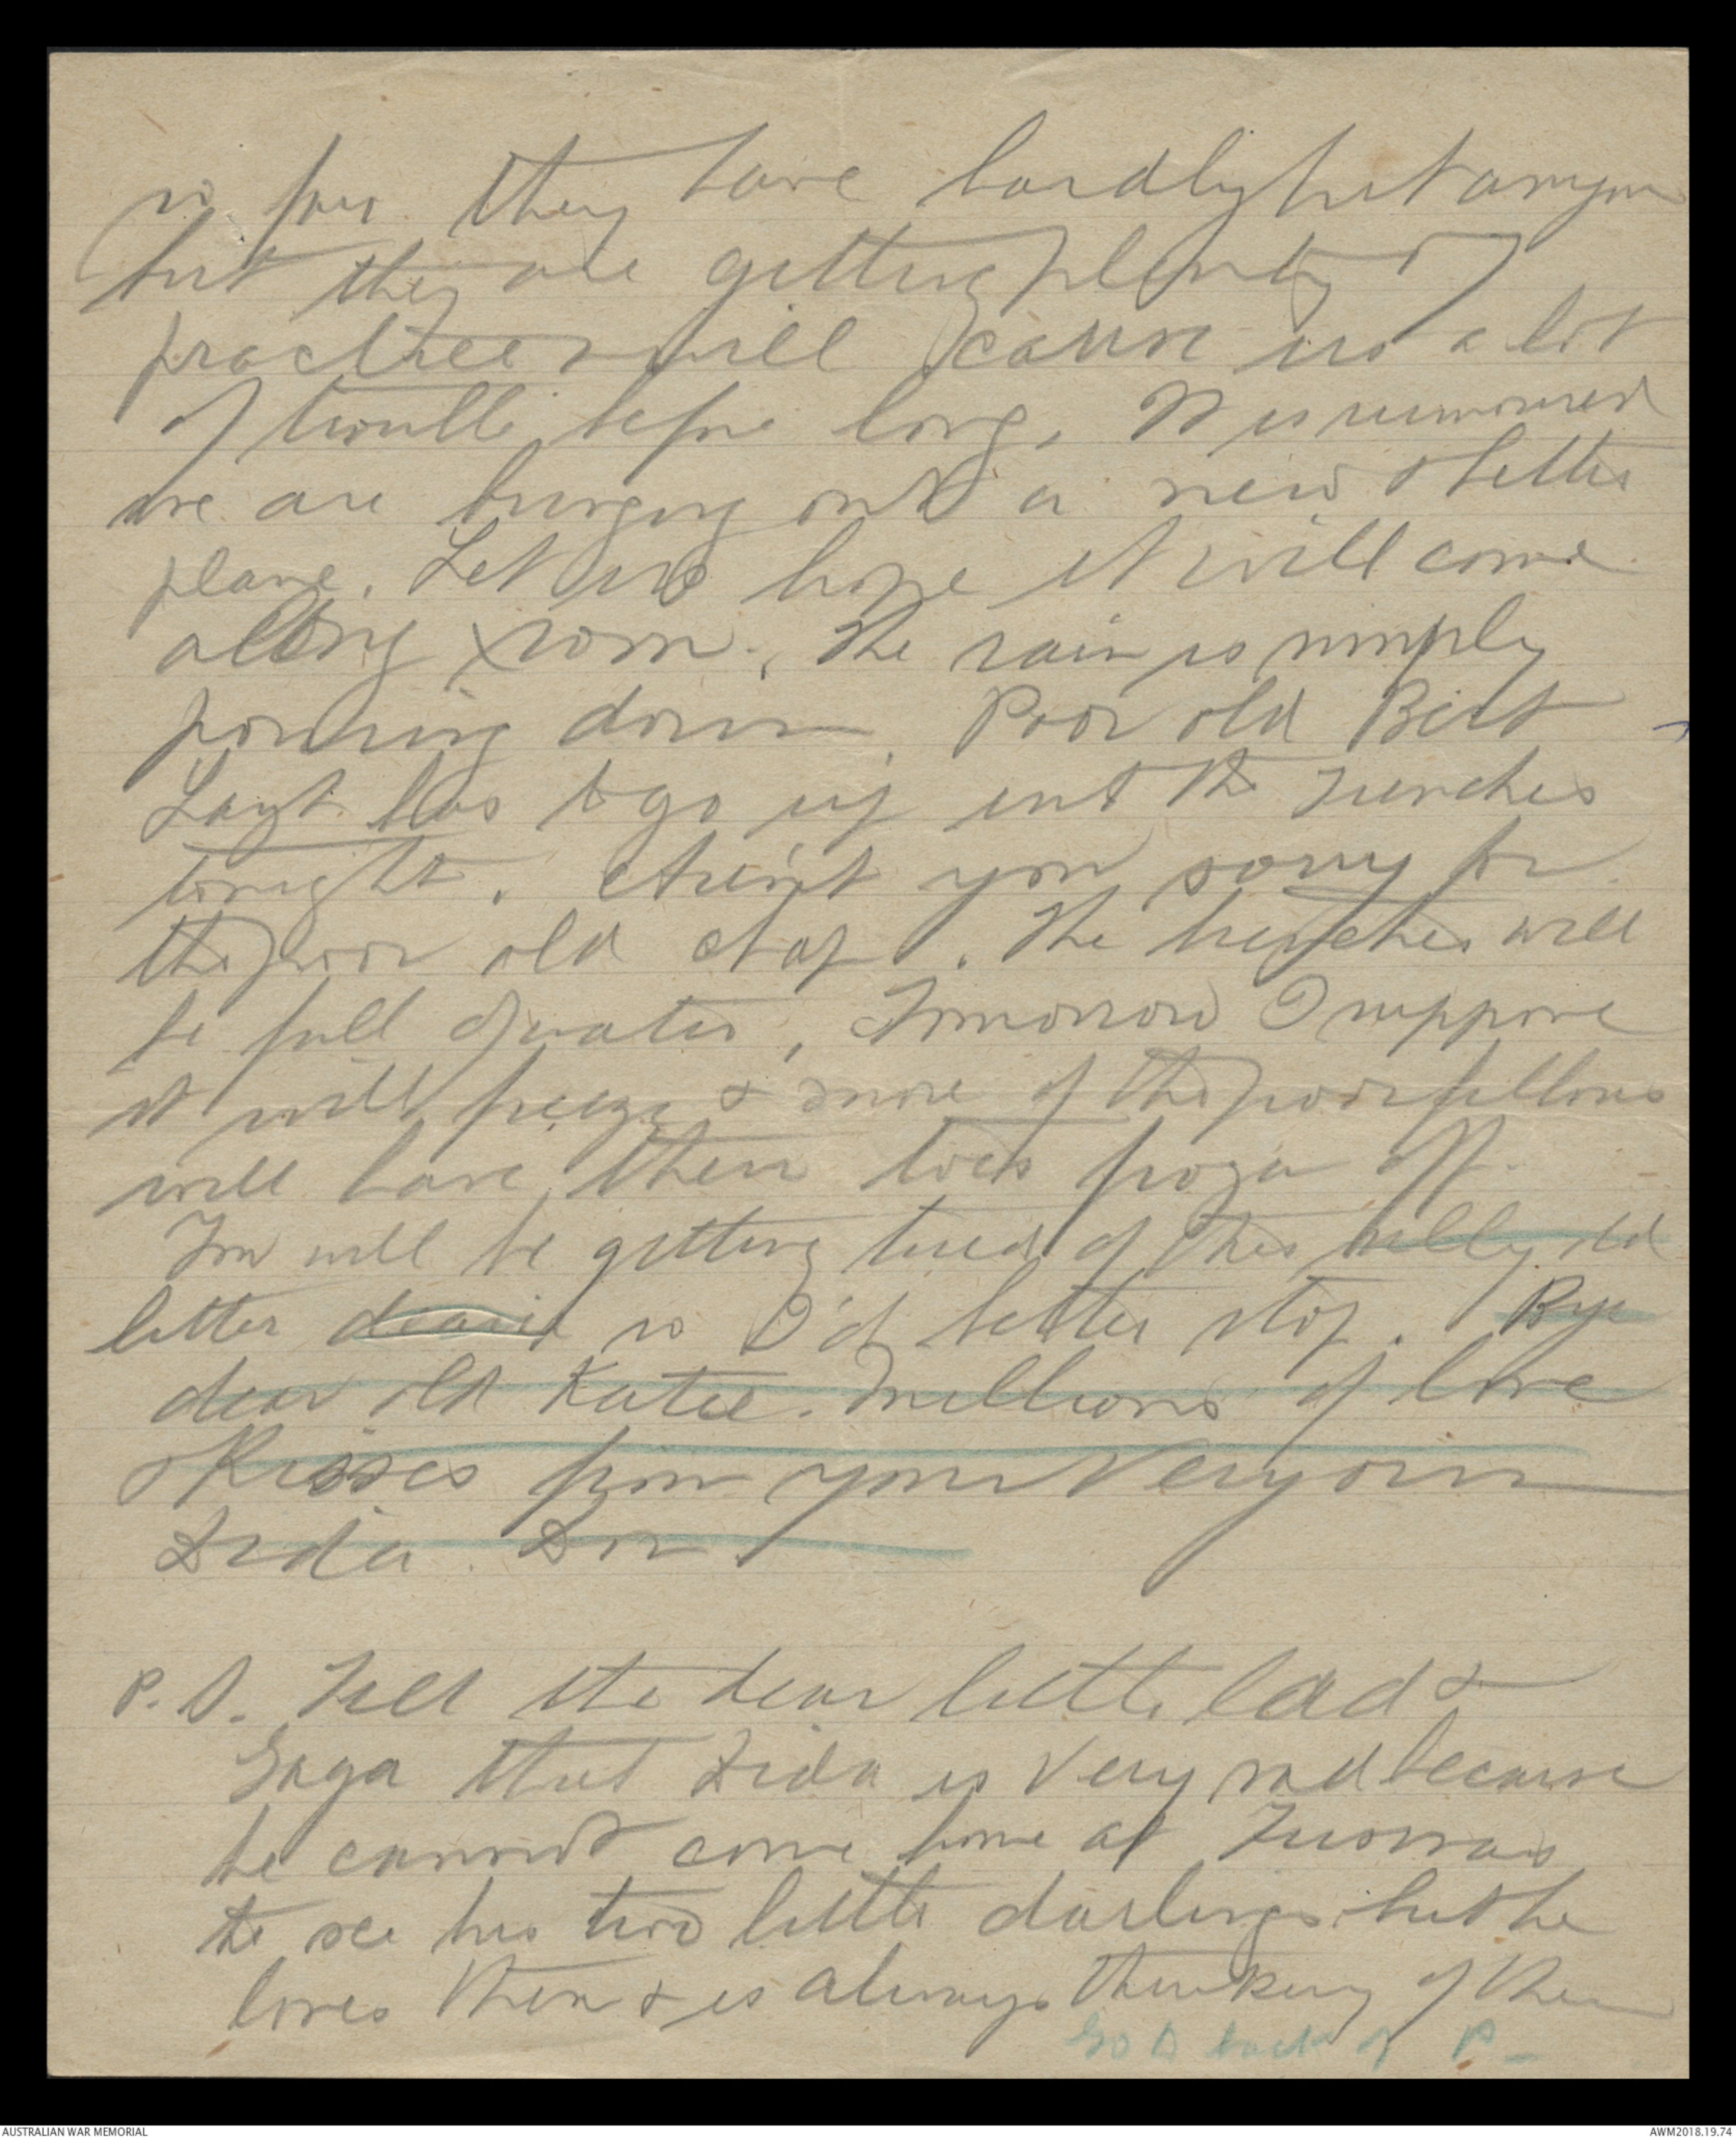 so far they have hardly hit anyone
but they are getting plenty of
practice & will cause us a lot
of trouble before long. It is rumoured
we are bringing out a new & better
plane. Let us hope it will come
along soon. The rain is simply
pouring down. Poor old Bert
Layh has to go up into the trenches
tonight. Aren't you sorry for
the poor old chap. The trenches will
be full of water, Tomorrow I suppose
it will freeze & more of the poor fellows
will have their toes frozen off.
You will be getting tired of this silly old
letter dearie so I'd better stop. Bye
dear old Katie. Millions of love
& Kisses from your Very own
Dida. Don.
P.S. Tell the dear little lad &
Gaga that Dida is Very sad because
he cannot come home at Xmas
to see his two little darlings but he
loves them & is always thinking of them
Go to back of P
AUSTRALIAN WAR MEMORIAL
AWM2018.19.74